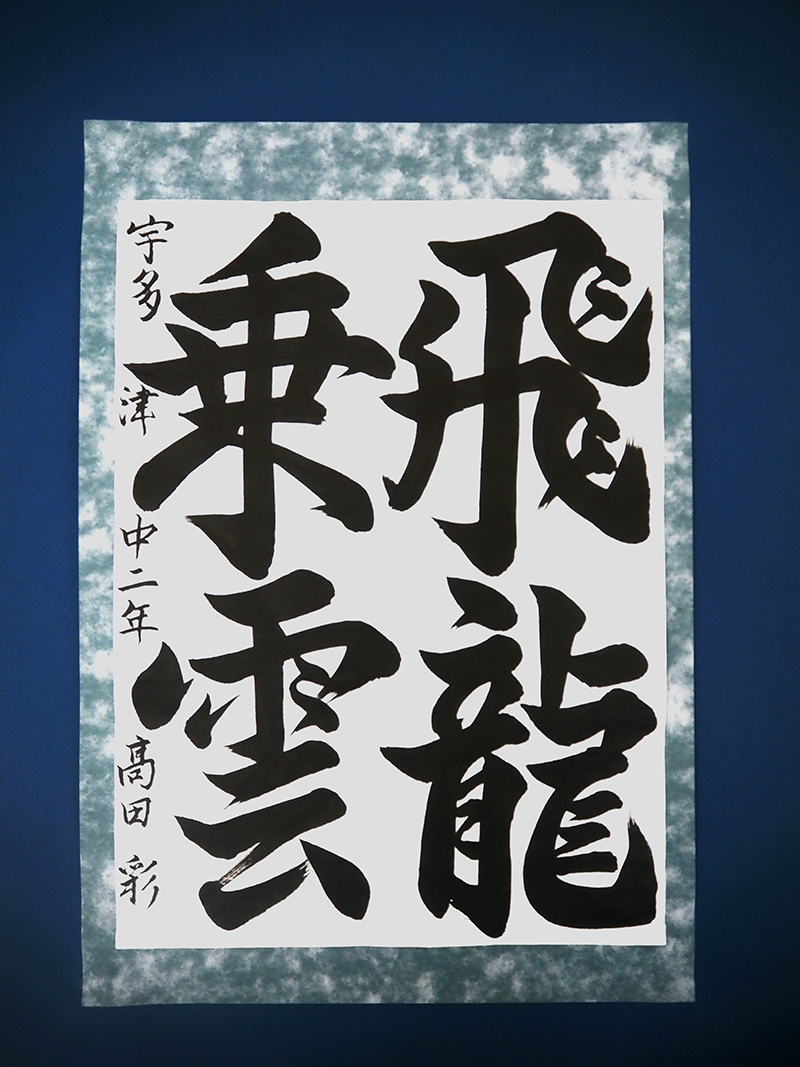 飛龍
乗雲
宇多津中二年髙田彩